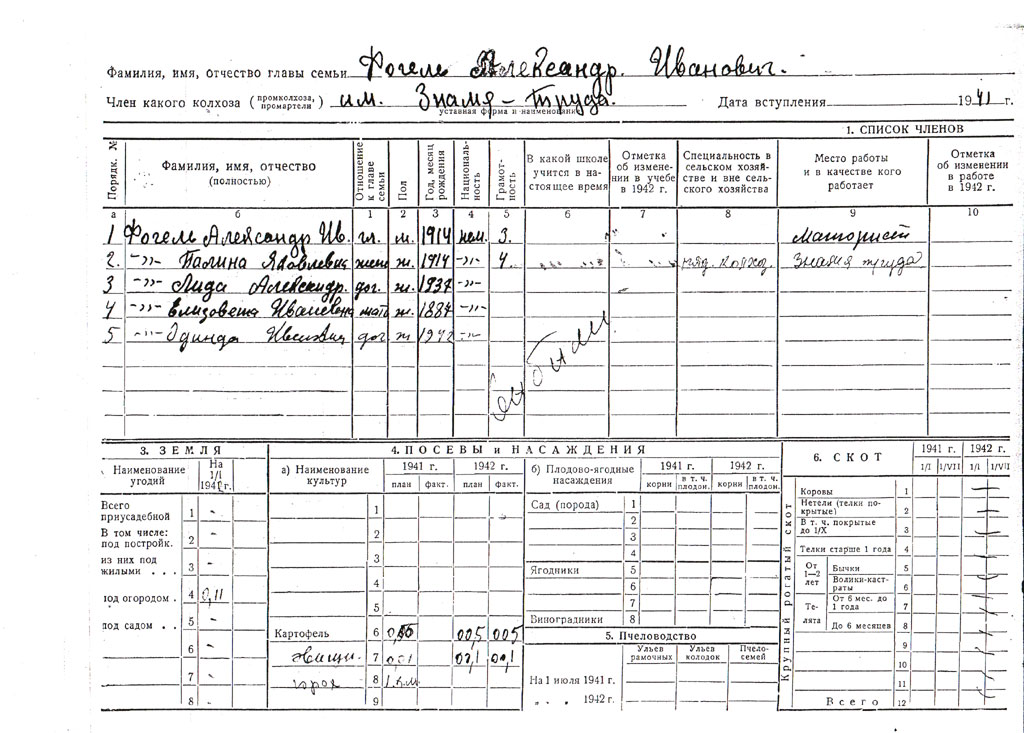 Фамилия, имя, отчество главы семьи Фогель Александр. Иванович.
Член какого колхоза (промколхоза, промартели) им. Знамя-труда. Дата вступления 1941 г.
уставная форма и наименование
1. СПИСОК ЧЛЕНОВ
Порядк. № Фамилия, имя, отчество (полностью) Отношение к главе семьи Пол Год, месяц рождения Националь-ность Грамот-ность В какой школе учится в на-стоящее время Отметка об измене-нии в учебе в 1942 г. Специальность в сельском хозяй-стве и вне сель-ского хозяйства Место работы и в качестве кого работает Отметка об изменении в работе в 1942 г.
а б 1 2 3 4 5 6 7 8 9 10
1 Фогель Александр Ив. гл. м. 1914 нем. 3. Маторист
2. -»- Палина Яковлевна жена ж. 1914 -»- 4. ряд. колхоз. Знамя труда
3 -»- Лида Александр. дог. ж. 1937 -»-
4 -»- Елизовета Ивановна мать ж. 1887 -»-
5 -»- дог. ж 1942 -»-
3. ЗЕМЛЯ
Наименование угодий На 1/I 1942 г.
Всего приусадебной 1 -
В том числе: под постройк. 2 -
из них под жилыми . . . 3 -
под огородом . 4 0,11
под садом . . 5 -
6 -
7 -
8 -
4. ПОСЕВЫ и НАСАЖДЕНИЯ
а) Наименование культур 1941 г. 1942 г.
план факт. план факт.
1
2
3
4
5
Картофель 6 005 005
7 0,01
8
9
б) Плодово-ягодные насаждения 1941 г. 1942 г.
корни в т. ч. плодон. корни в т. ч. плодон.
Сад (порода) 1
2
3
4
Ягодники 5
6
7
Виноградники 8
5. Пчеловодство
Ульев рамочных Ульев колодок Пчело-семей
На 1 июля 1941 г.
„ „ „ 1942 г.
6. СКОТ 1941 г. 1942 г.
1/I 1/VII 1/I 1/VII
Крупный рогатый скот
Коровы 1
Нетели (телки по-крытые) 2
В т. ч. покрытые до 1/X 3
Телки старше 1 года 4
От 1—2 лет Бычки 5
Волики-каст-раты 6
Те-лята От 6 мес. до 1 года 7
До 6 месяцев 8
9
10
11
Всего 12